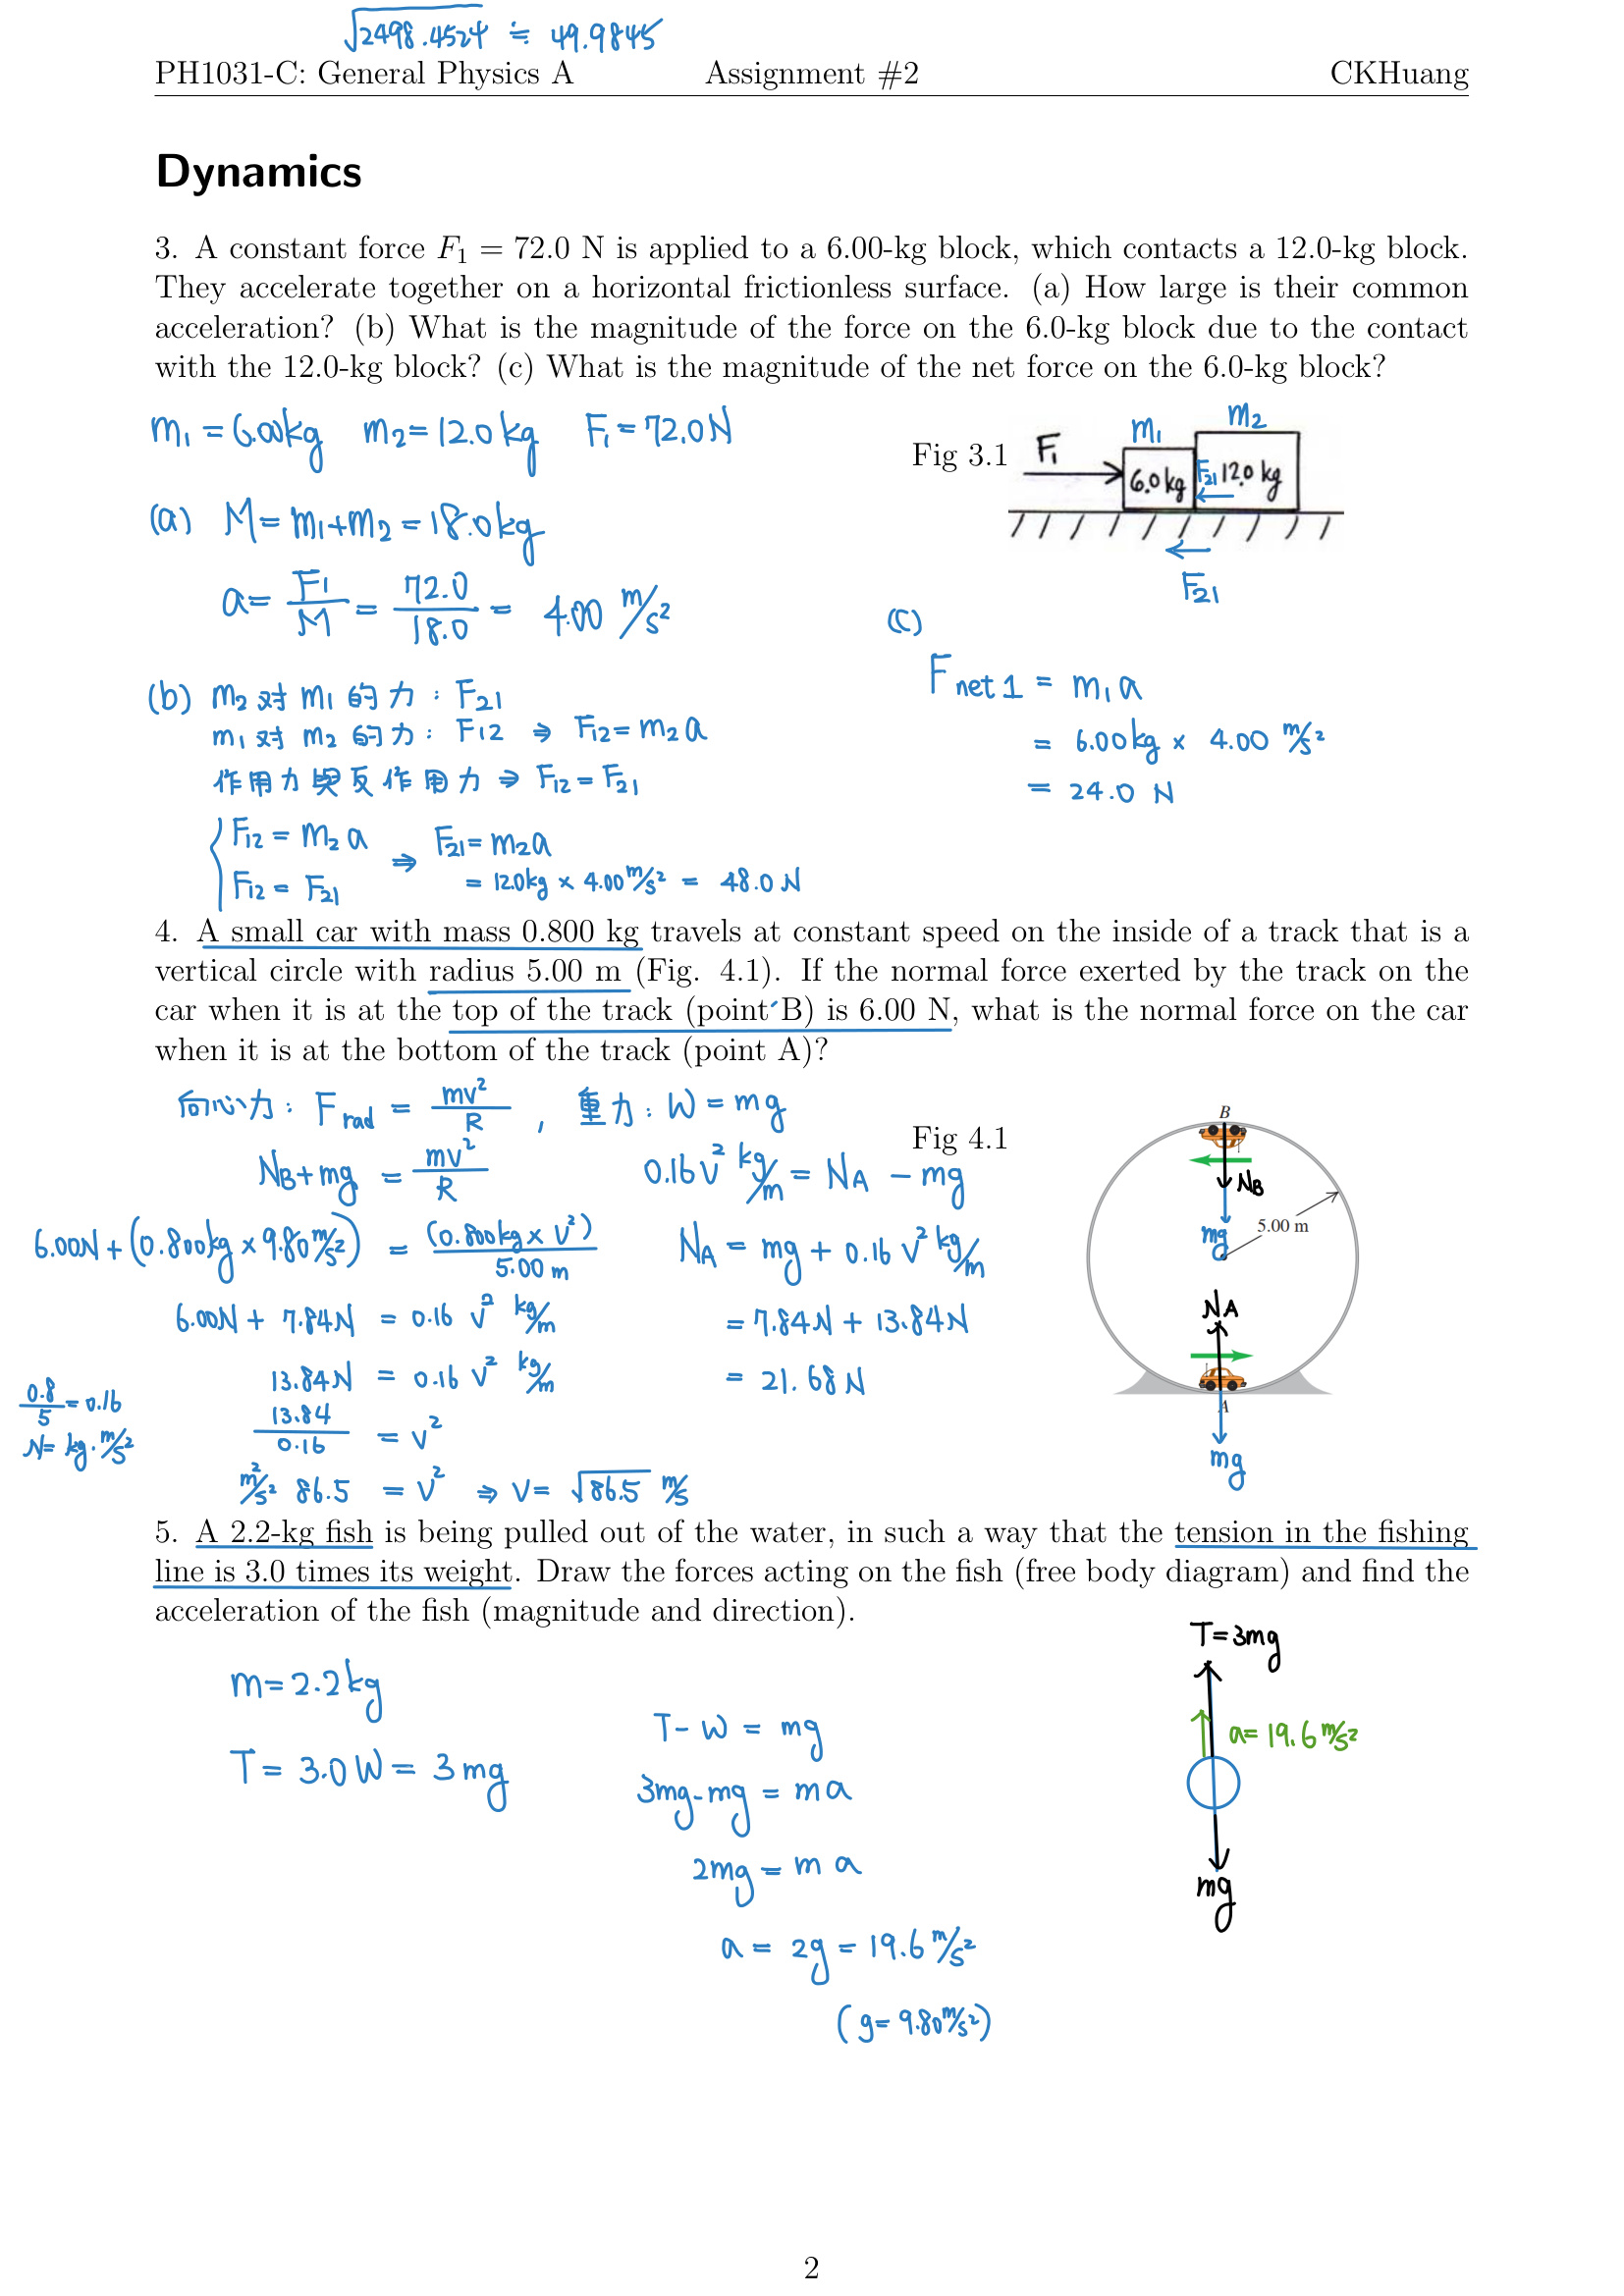 √2498.4524 ≒ 49.9845
PH1031-C: General Physics A Assignment #2 CKHuang
Dynamics
3. A constant force F₁ = 72.0 N is applied to a 6.00-kg block, which contacts a 12.0-kg block.
They accelerate together on a horizontal frictionless surface. (a) How large is their common
acceleration? (b) What is the magnitude of the force on the 6.0-kg block due to the contact
with the 12.0-kg block? (c) What is the magnitude of the net force on the 6.0-kg block?
m₁ = 6.00kg m₂ = 12.0kg F₁ = 72.0N
Fig 3.1
F₁
m₁
m₂
6.0kg
F₂₁
12.0 kg
F₂₁
(a) M = m₁+m₂ = 18.0kg
a = F₁/M = 72.0/18.0 = 4.00 m/s²
(b) m₂ 对 m₁ 的力 : F₂₁
m₁ 对 m₂ 的力 : F₁₂ ⇒ F₁₂ = m₂a
作用力與反作用力 ⇒ F₁₂ = F₂₁
{ F₁₂ = m₂a
F₁₂ = F₂₁
⇒ F₂₁ = m₂a
= 12.0kg × 4.00 m/s² = 48.0 N
(c)
F net 1 = m₁a
= 6.00kg × 4.00 m/s²
= 24.0 N
4. A small car with mass 0.800 kg travels at constant speed on the inside of a track that is a
vertical circle with radius 5.00 m (Fig. 4.1). If the normal force exerted by the track on the
car when it is at the top of the track (point B) is 6.00 N, what is the normal force on the car
when it is at the bottom of the track (point A)?
向心力 : F rad = mv²/R , 重力 : W = mg
N_B + mg = mv²/R
6.00N + (0.800kg × 9.80 m/s²) = (0.800kg × v²)/5.00 m
6.00N + 7.84N = 0.16 v² kg/m
13.84N = 0.16 v² kg/m
13.84/0.16 = v²
m²/s² 86.5 = v² ⇒ v = √86.5 m/s
0.8/5 = 0.16
N = kg·m/s²
0.16v² kg/m = N_A − mg
N_A = mg + 0.16 v² kg/m
= 7.84N + 13.84N
= 21.68 N
Fig 4.1
B
N_B
mg
5.00 m
N_A
A
mg
5. A 2.2-kg fish is being pulled out of the water, in such a way that the tension in the fishing
line is 3.0 times its weight. Draw the forces acting on the fish (free body diagram) and find the
acceleration of the fish (magnitude and direction).
m = 2.2kg
T = 3.0W = 3mg
T − W = mg
3mg − mg = ma
2mg = ma
a = 2g = 19.6 m/s²
(g = 9.80 m/s²)
T = 3mg
a = 19.6 m/s²
mg
2